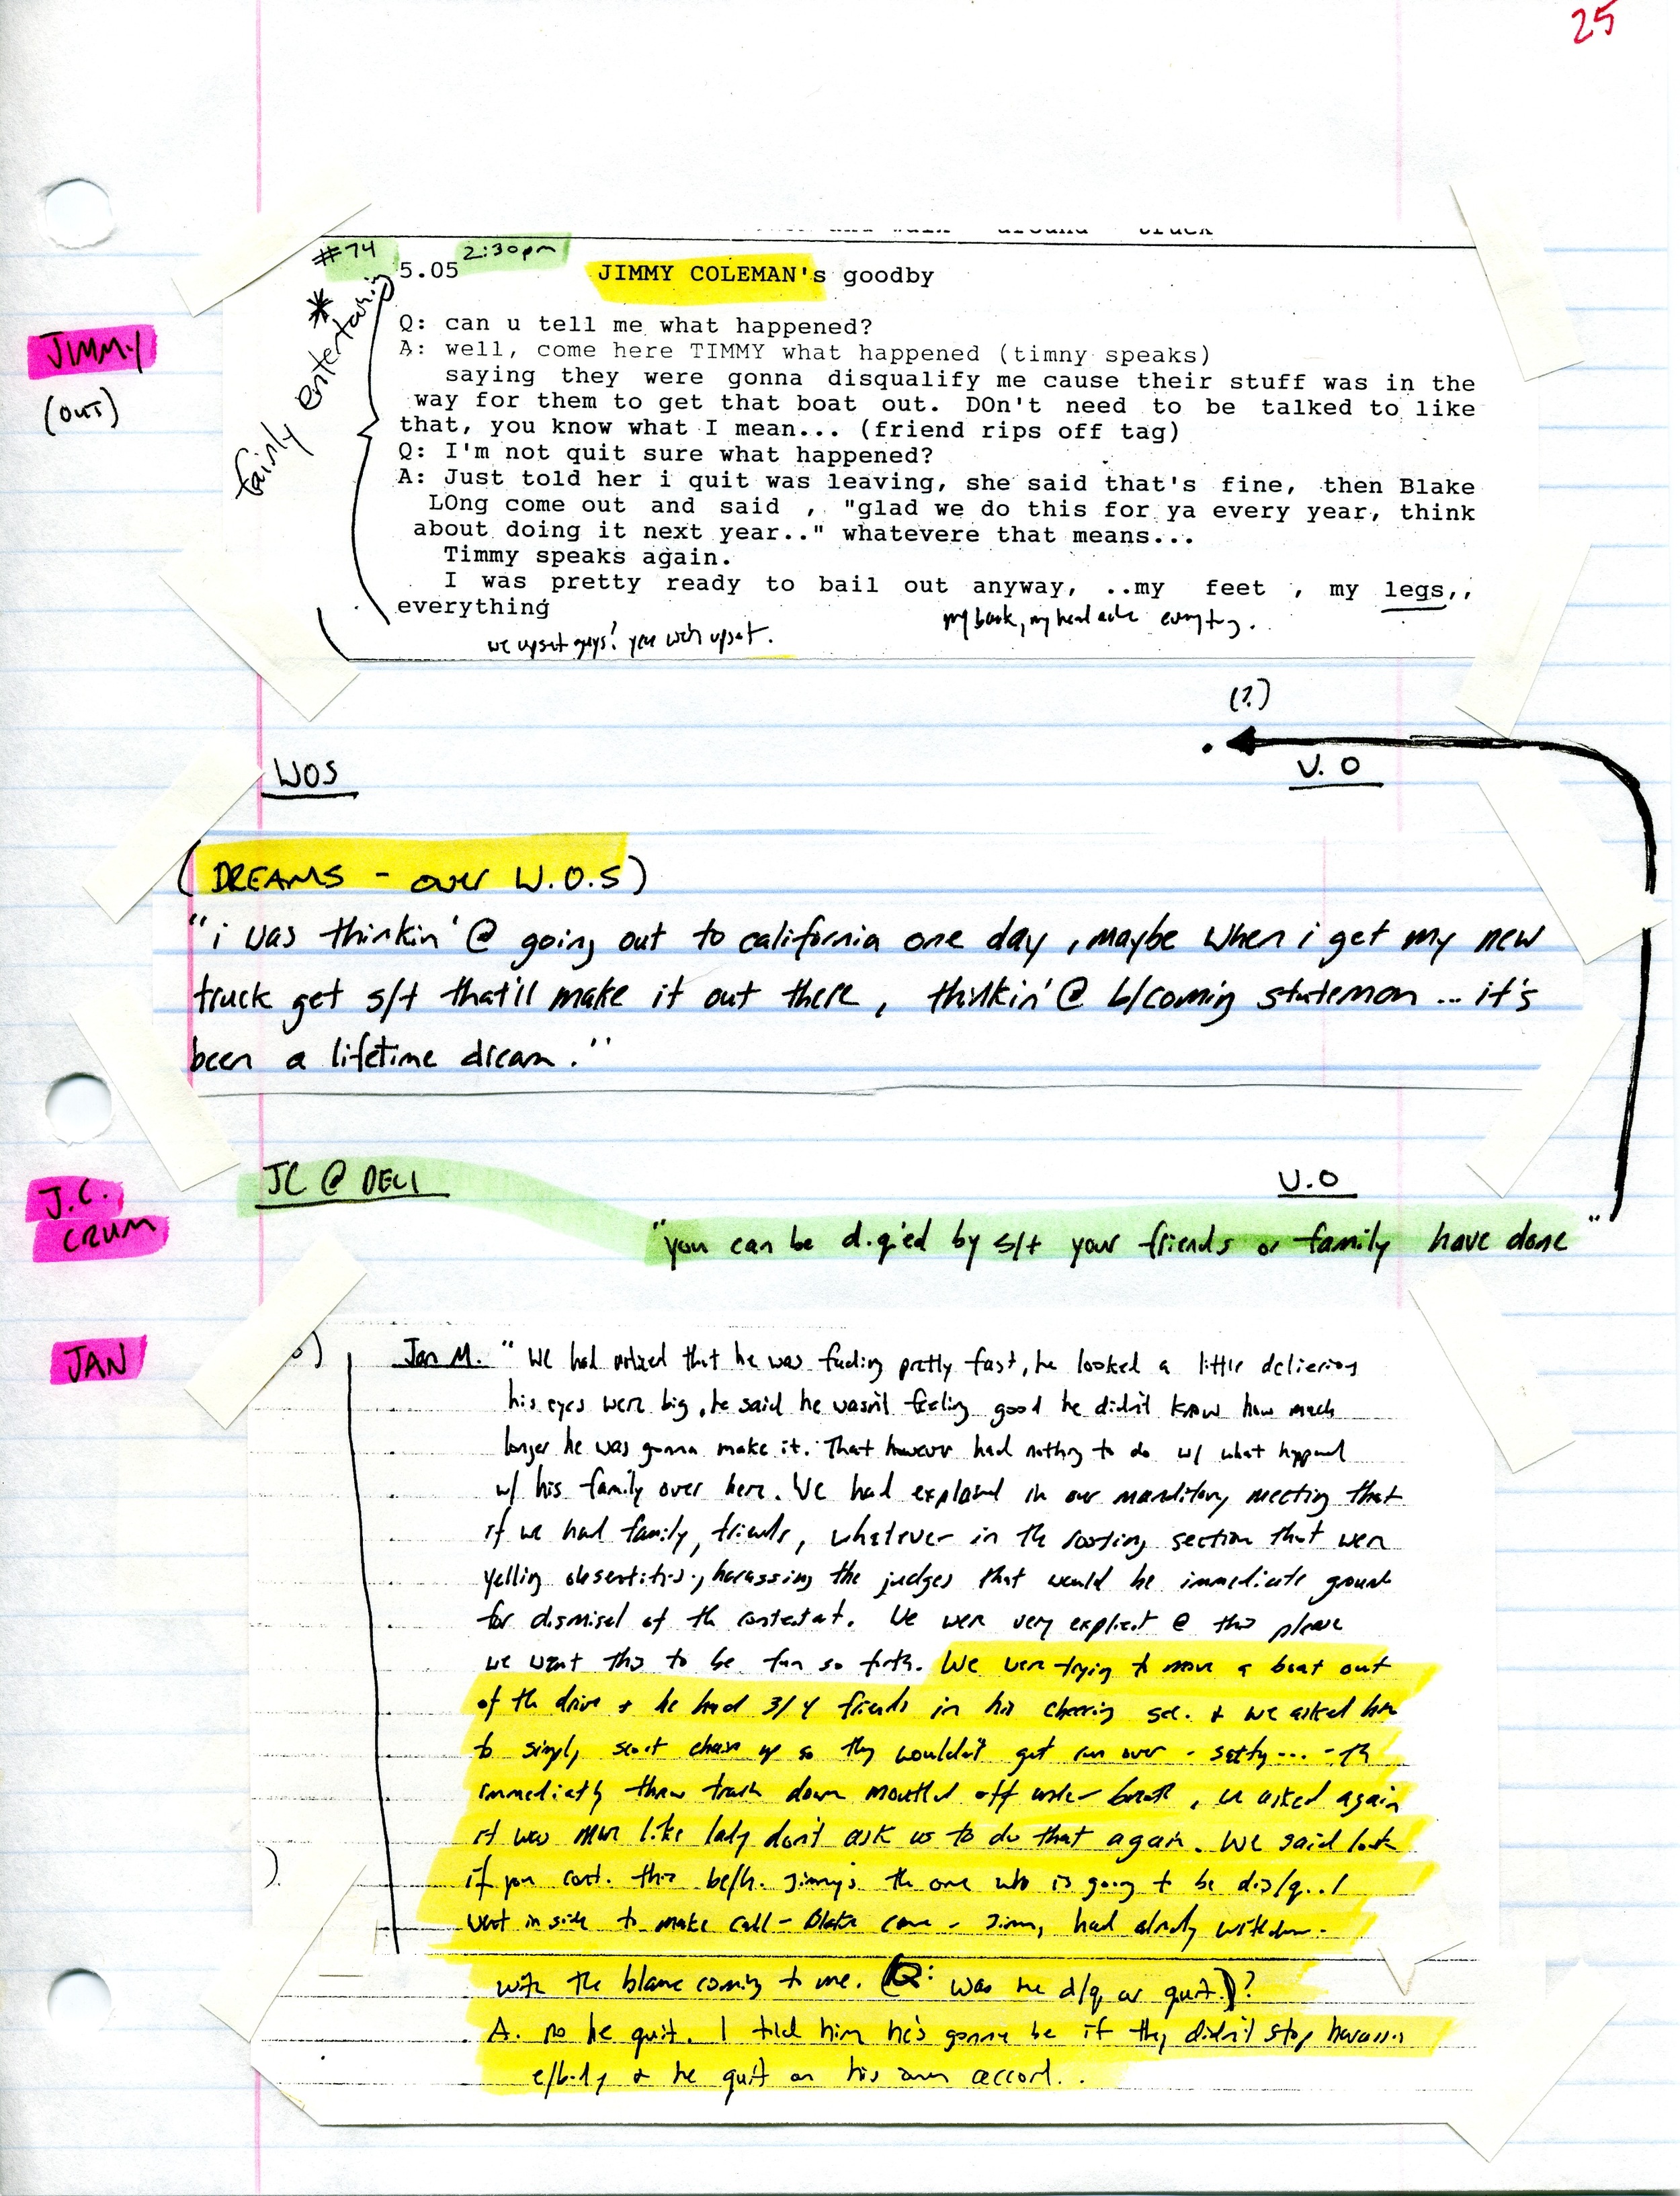 25
#74 2:30pm
5.05 JIMMY COLEMAN's goodby
* fairly entertaining
JIMMY
(OUT)
Q: can u tell me what happened?
A: well, come here TIMMY what happened (timny speaks)
saying they were gonna disqualify me cause their stuff was in the
way for them to get that boat out. DOn't need to be talked to like
that, you know what I mean... (friend rips off tag)
Q: I'm not quit sure what happened?
A: Just told her i quit was leaving, she said that's fine, then Blake
LOng come out and said , "glad we do this for ya every year, think
about doing it next year.." whatevere that means...
Timmy speaks again.
I was pretty ready to bail out anyway, ..my feet , my legs,,
everything
my back, my head ache everything.
we upset guys? yea we're upset.
(?)
WOS V.O
(DREAMS - over W.O.S)
"i was thinkin' @ going out to california one day, maybe when i get my new
truck get s/t that'll make it out there, thinkin' @ b/coming stuntman ... it's
been a lifetime dream."
J.C.
CRUM
JC @ DELI V.O
"you can be d.q'ed by s/t your friends or family have done"
JAN
Jan M. "We had noticed that he was fading pretty fast, he looked a little delierious
his eyes were big, he said he wasn't feeling good he didn't know how much
longer he was gonna make it. That however had nothing to do w/ what happend
w/ his family over here. We had explaind in our manditory meeting that
if we had family, friends, whatever in the rooting section that were
yelling obsentities, harassing the judges that would be immediate grounds
for dismisel of th contestat. We were very explicit @ this please
we want this to be fun so forth. We were trying to move a boat out
of th drive + he had 3/4 friends in his cheering sec. + we asked him
to simply scoot chairs up so they wouldn't get run over - safty... - th
immediatly threw trash down mouthed off under breath, we asked again
it was more like lady don't ask us to do that again. We said look
if you cont. this be/h. Jimmy's th one who is going to be dis/q.. I
went in side to make call - Blake came - Jimmy had alredy withdrawn.
with the blame coming to me. (Q: was he d/q or quit.)?
A. no he quit. I told him he's gonna be if they didn't stop harassing
e/body + he quit on his own accord..